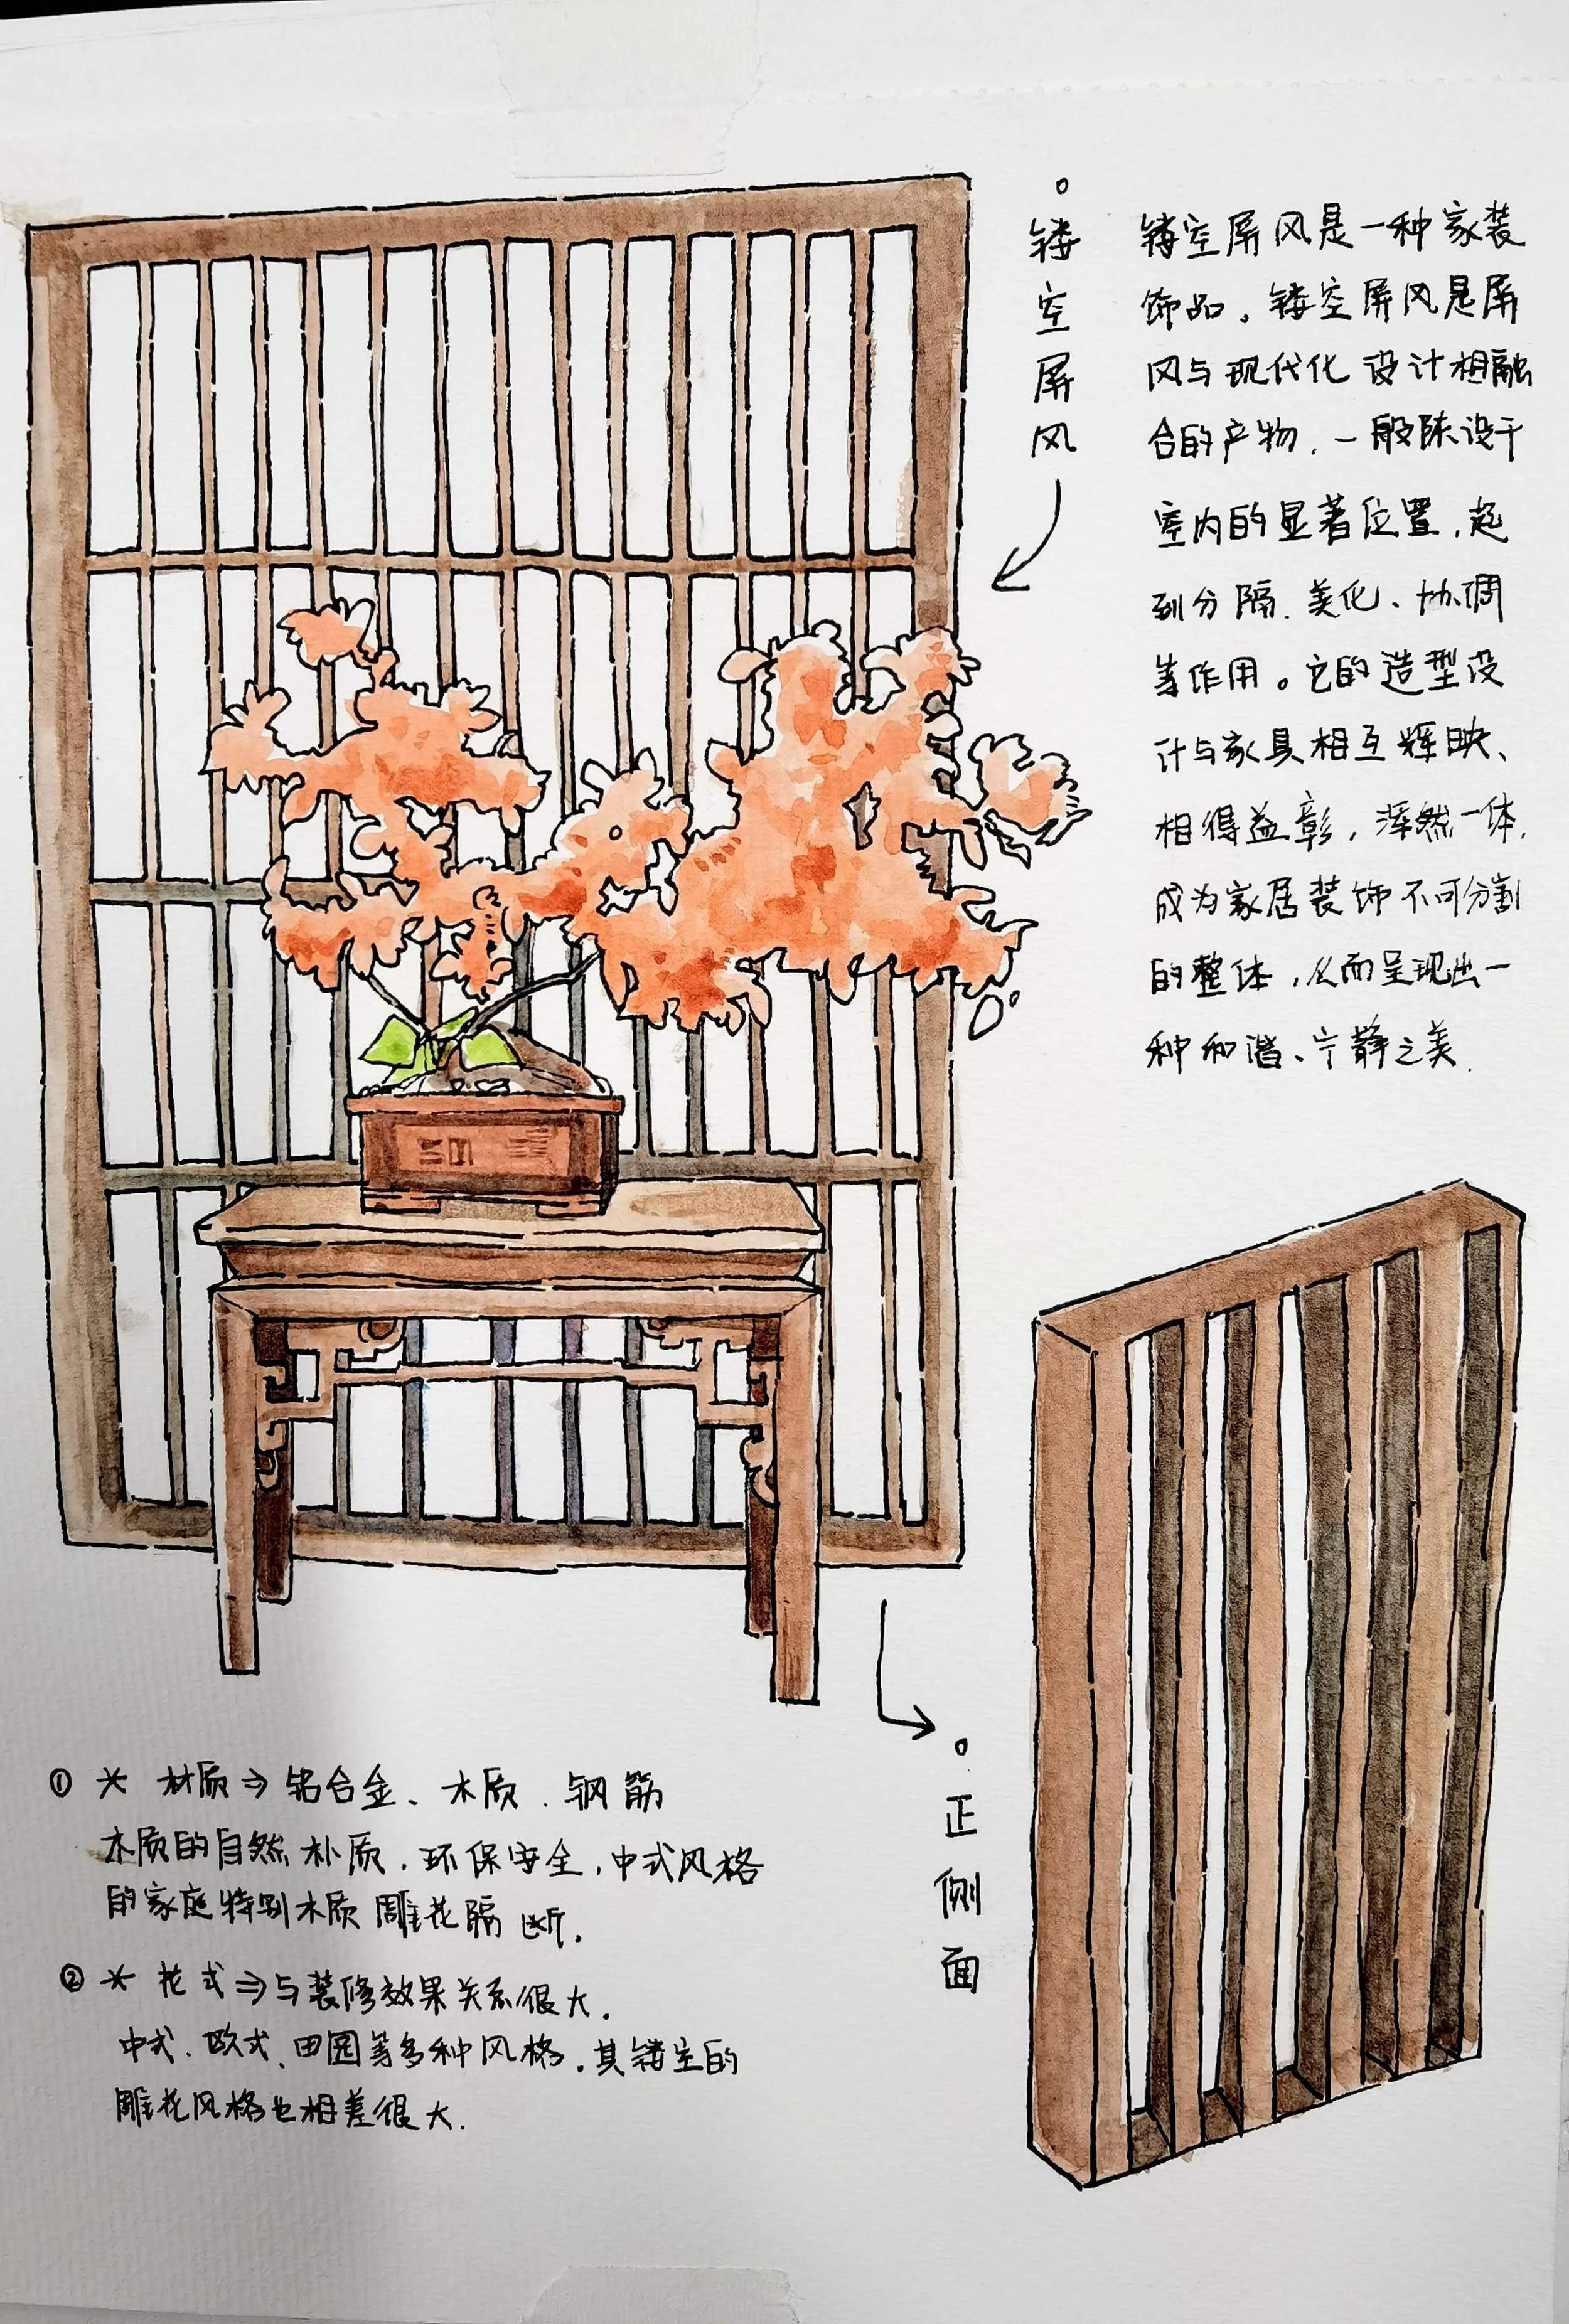 镂空屏风
镂空屏风是一种家装
饰品。镂空屏风是屏
风与现代化设计相融
合的产物,一般陈设于
室内的显著位置,起
到分隔、美化、协调
等作用。它的造型设
计与家具相互辉映、
相得益彰,浑然一体,
成为家居装饰不可分割
的整体,从而呈现出一
种和谐、宁静之美.
正侧面
① * 材质⇒铝合金、木质、钢筋
木质的自然朴质,环保安全,中式风格
的家庭特别木质雕花隔断.
② * 花式⇒与装修效果关系很大.
中式、欧式、田园等多种风格,其镂空的
雕花风格也相差很大.